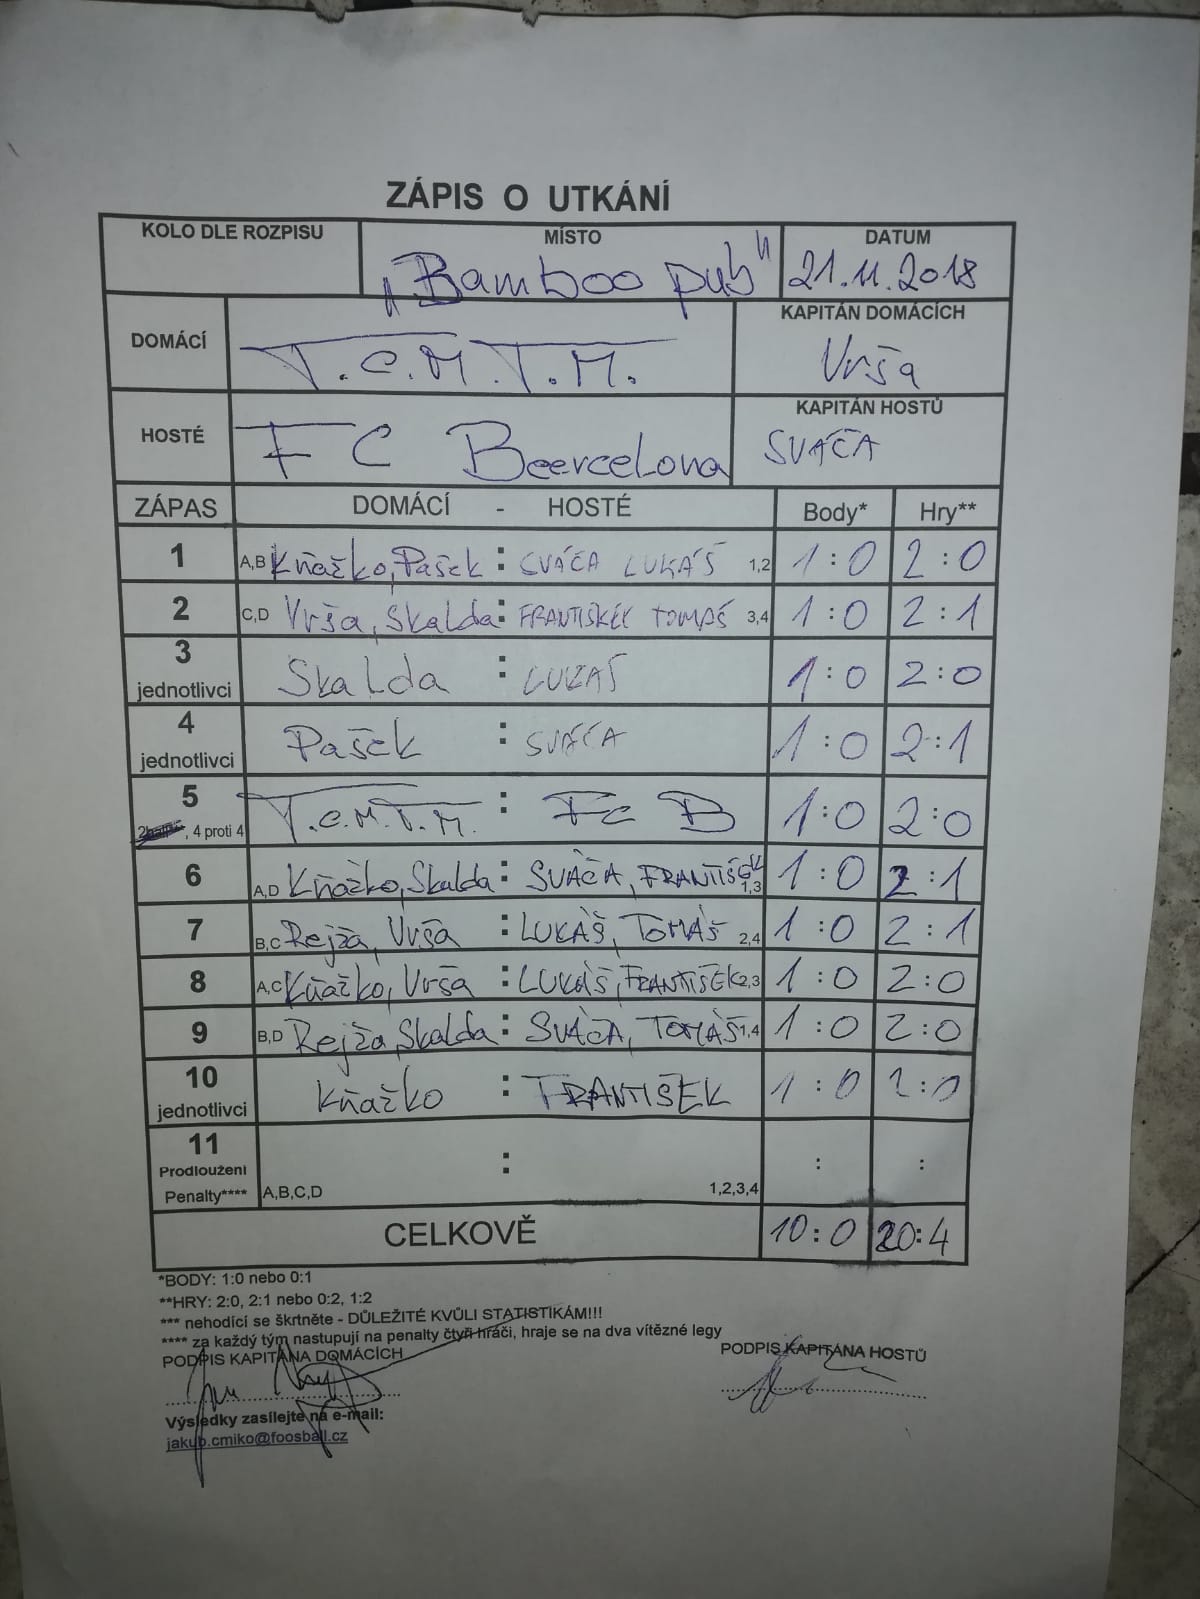 ZÁPIS O UTKÁNÍ
KOLO DLE ROZPISU MÍSTO DATUM
„Bamboo pub" 21.11.2018
DOMÁCÍ T.C.M.T.M. KAPITÁN DOMÁCÍCH
Vrša
HOSTÉ FC Beercelona KAPITÁN HOSTŮ
SVÁČA
ZÁPAS DOMÁCÍ - HOSTÉ Body* Hry**
1 A,B Kňažko, Pašek : SVÁČA LUKÁŠ 1,2 1:0 2:0
2 C,D Vrša, Skalda : FRANTIŠEK TOMÁŠ 3,4 1:0 2:1
3 jednotlivci Skalda : LUKÁŠ 1:0 2:0
4 jednotlivci Pašek : SVÁČA 1:0 2:1
5 , 4 proti 4 T.C.M.T.M. : FC B 1:0 2:0
6 A,D Kňažko, Skalda : SVÁČA, FRANTIŠEK 1,3 1:0 2:1
7 B,C Rejža, Vrša : LUKÁŠ, TOMÁŠ 2,4 1:0 2:1
8 A,C Kňažko, Vrša : LUKÁŠ, FRANTIŠEK 2,3 1:0 2:0
9 B,D Rejža, Skalda : SVÁČA, TOMÁŠ 1,4 1:0 2:0
10 jednotlivci Kňažko : FRANTIŠEK 1:0 2:0
11 Prodloužení : : :
Penalty**** A,B,C,D 1,2,3,4
CELKOVĚ 10:0 20:4
*BODY: 1:0 nebo 0:1
**HRY: 2:0, 2:1 nebo 0:2, 1:2
*** nehodící se škrtněte - DŮLEŽITÉ KVŮLI STATISTIKÁM!!!
**** za každý tým nastupují na penalty čtyři hráči, hraje se na dva vítězné legy
PODPIS KAPITÁNA DOMÁCÍCH PODPIS KAPITÁNA HOSTŮ
Výsledky zasílejte na e-mail:
jakub.cmiko@foosball.cz